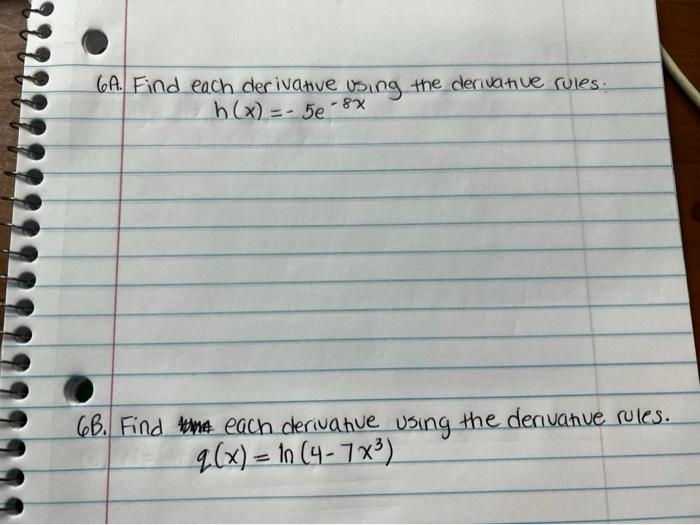 6A. Find each derivative using the derivative rules:
h(x) = - 5e^-8x
6B. Find each derivative using the derivative rules.
q(x) = ln (4 - 7x³)